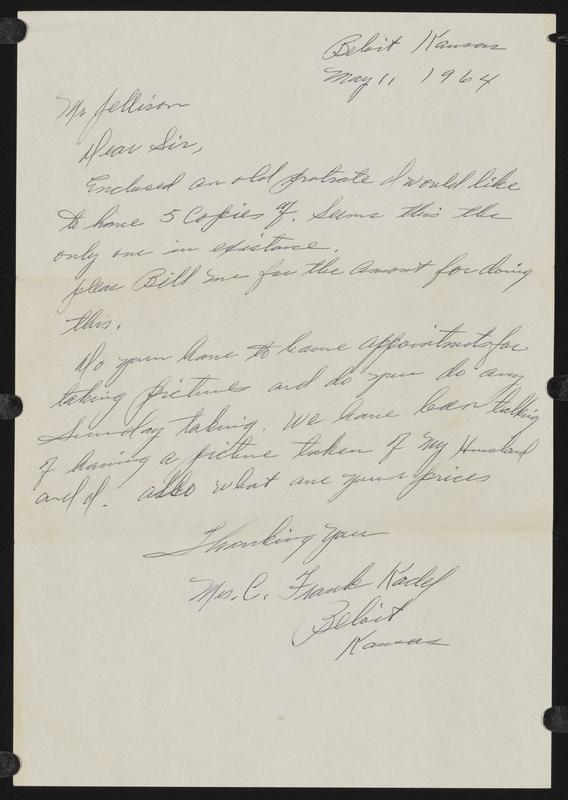 Beloit Kansas
May 11 1964
Mr Jellison
Dear Sir,
Enclosed an old protrate I would like
to have 5 Copies of. Seems this the
only one in existance.
pleas Bill me for the amont for doing
this.
Do your have to have appointments for
taking pictures and do you do any
Sunday taking. We have been talking
of having a picture taken of My Husband
and I. also what are your prices
Thanking you
Mrs. C. Frank Kadel
Beloit
Kansas